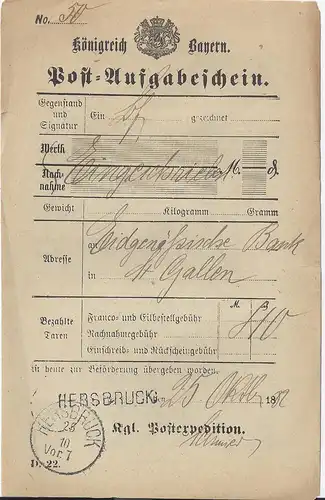 No. 50
Königreich Bayern.
Post-Aufgabeschein.
Gegenstand
und
Signatur
Ein Bf gezeichnet
Werth
Nach-
nahme
M. ₰.
Gewicht Kilogramm Gramm
Adresse
an Eidgenössische Bank
in St Gallen
M. ₰
Bezahlte
Taxen
Franco- und Eilbestellgebühr
Nachnahmegebühr
Einschreib- und Rückscheingebühr
40
ist heute zur Beförderung übergeben worden.
HERSBRUCK, 25 Oktb 188
HERSBRUCK
25
10
Vor. 7
Kgl. Postexpedition.
D. 22.